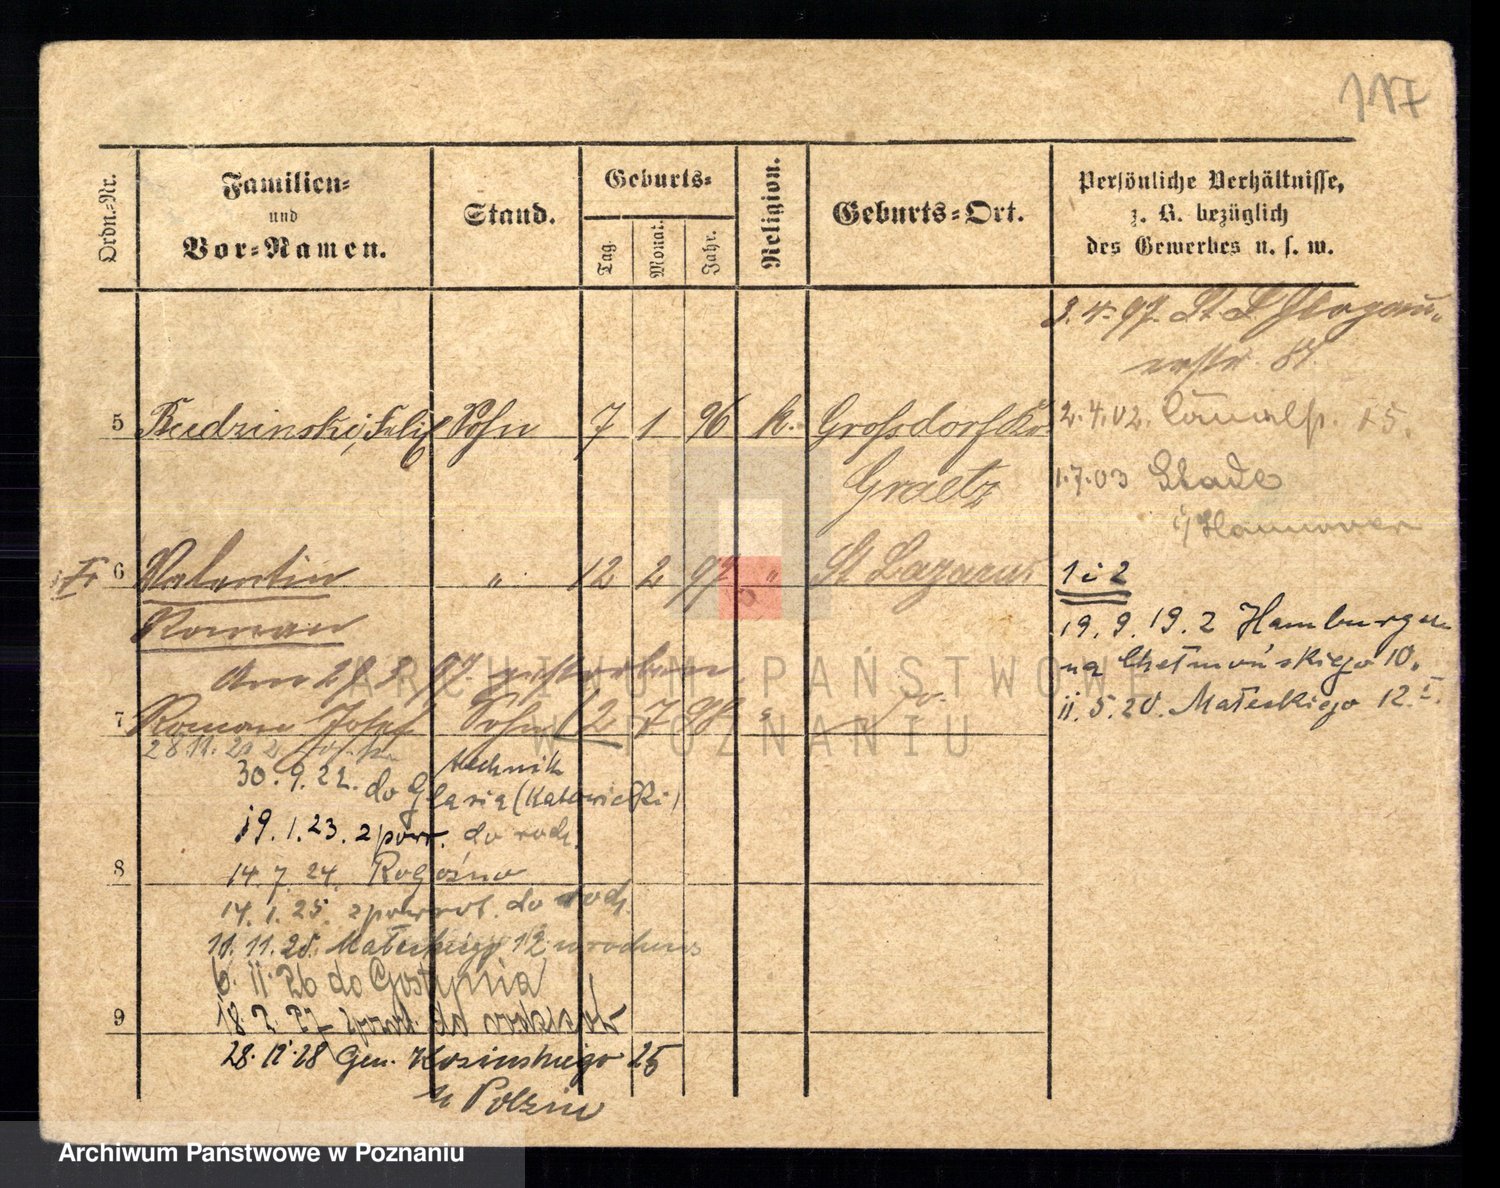 117
Ordn.-Nr.
Familien-
und
Vor-Namen.
Stand.
Geburts-
Tag.
Monat.
Jahr.
Religion.
Geburts-Ort.
Persönliche Verhältnisse,
z. B. bezüglich
des Gewerbes u. s. w.
3. 4. 97. St. L. Glogau.
erstr. 87.
5 Budzinski, Felix Sohn 7 1 96 k. Grofsdorf Kr.
Graetz
2. 4. 02. 15.
1. 7. 03 Stade
i/Hannover
6 Valentin " 12 2 97 " St Lazarus
Roman
am 29. 3. 97. gestorben
1 i 2
19. 9. 19. z Hamburgern
na Chełmońskiego 10.
11. 5. 20. Małeckiego 12
7 Roman Josef Sohn 12 7 98
technik
30. 9. 22. do (Katowicki)
19. 1. 23. z powr. do rodz.
8
14. 7. 24. Rogoźno
14. 1. 25. z powrot. do rodz.
10. 11. 25. Małeckiego 12
6. 11. 26 do Gostynia
9
18. 2. 27 do
28. 12. 28 Gen. Kosinskiego 25
ARCHIWUM PAŃSTWOWE
W POZNANIU
Archiwum Państwowe w Poznaniu